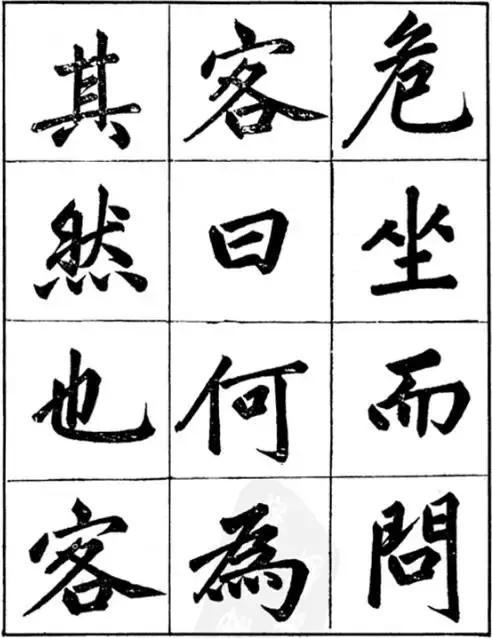 危坐而問
客曰何為
其然也客